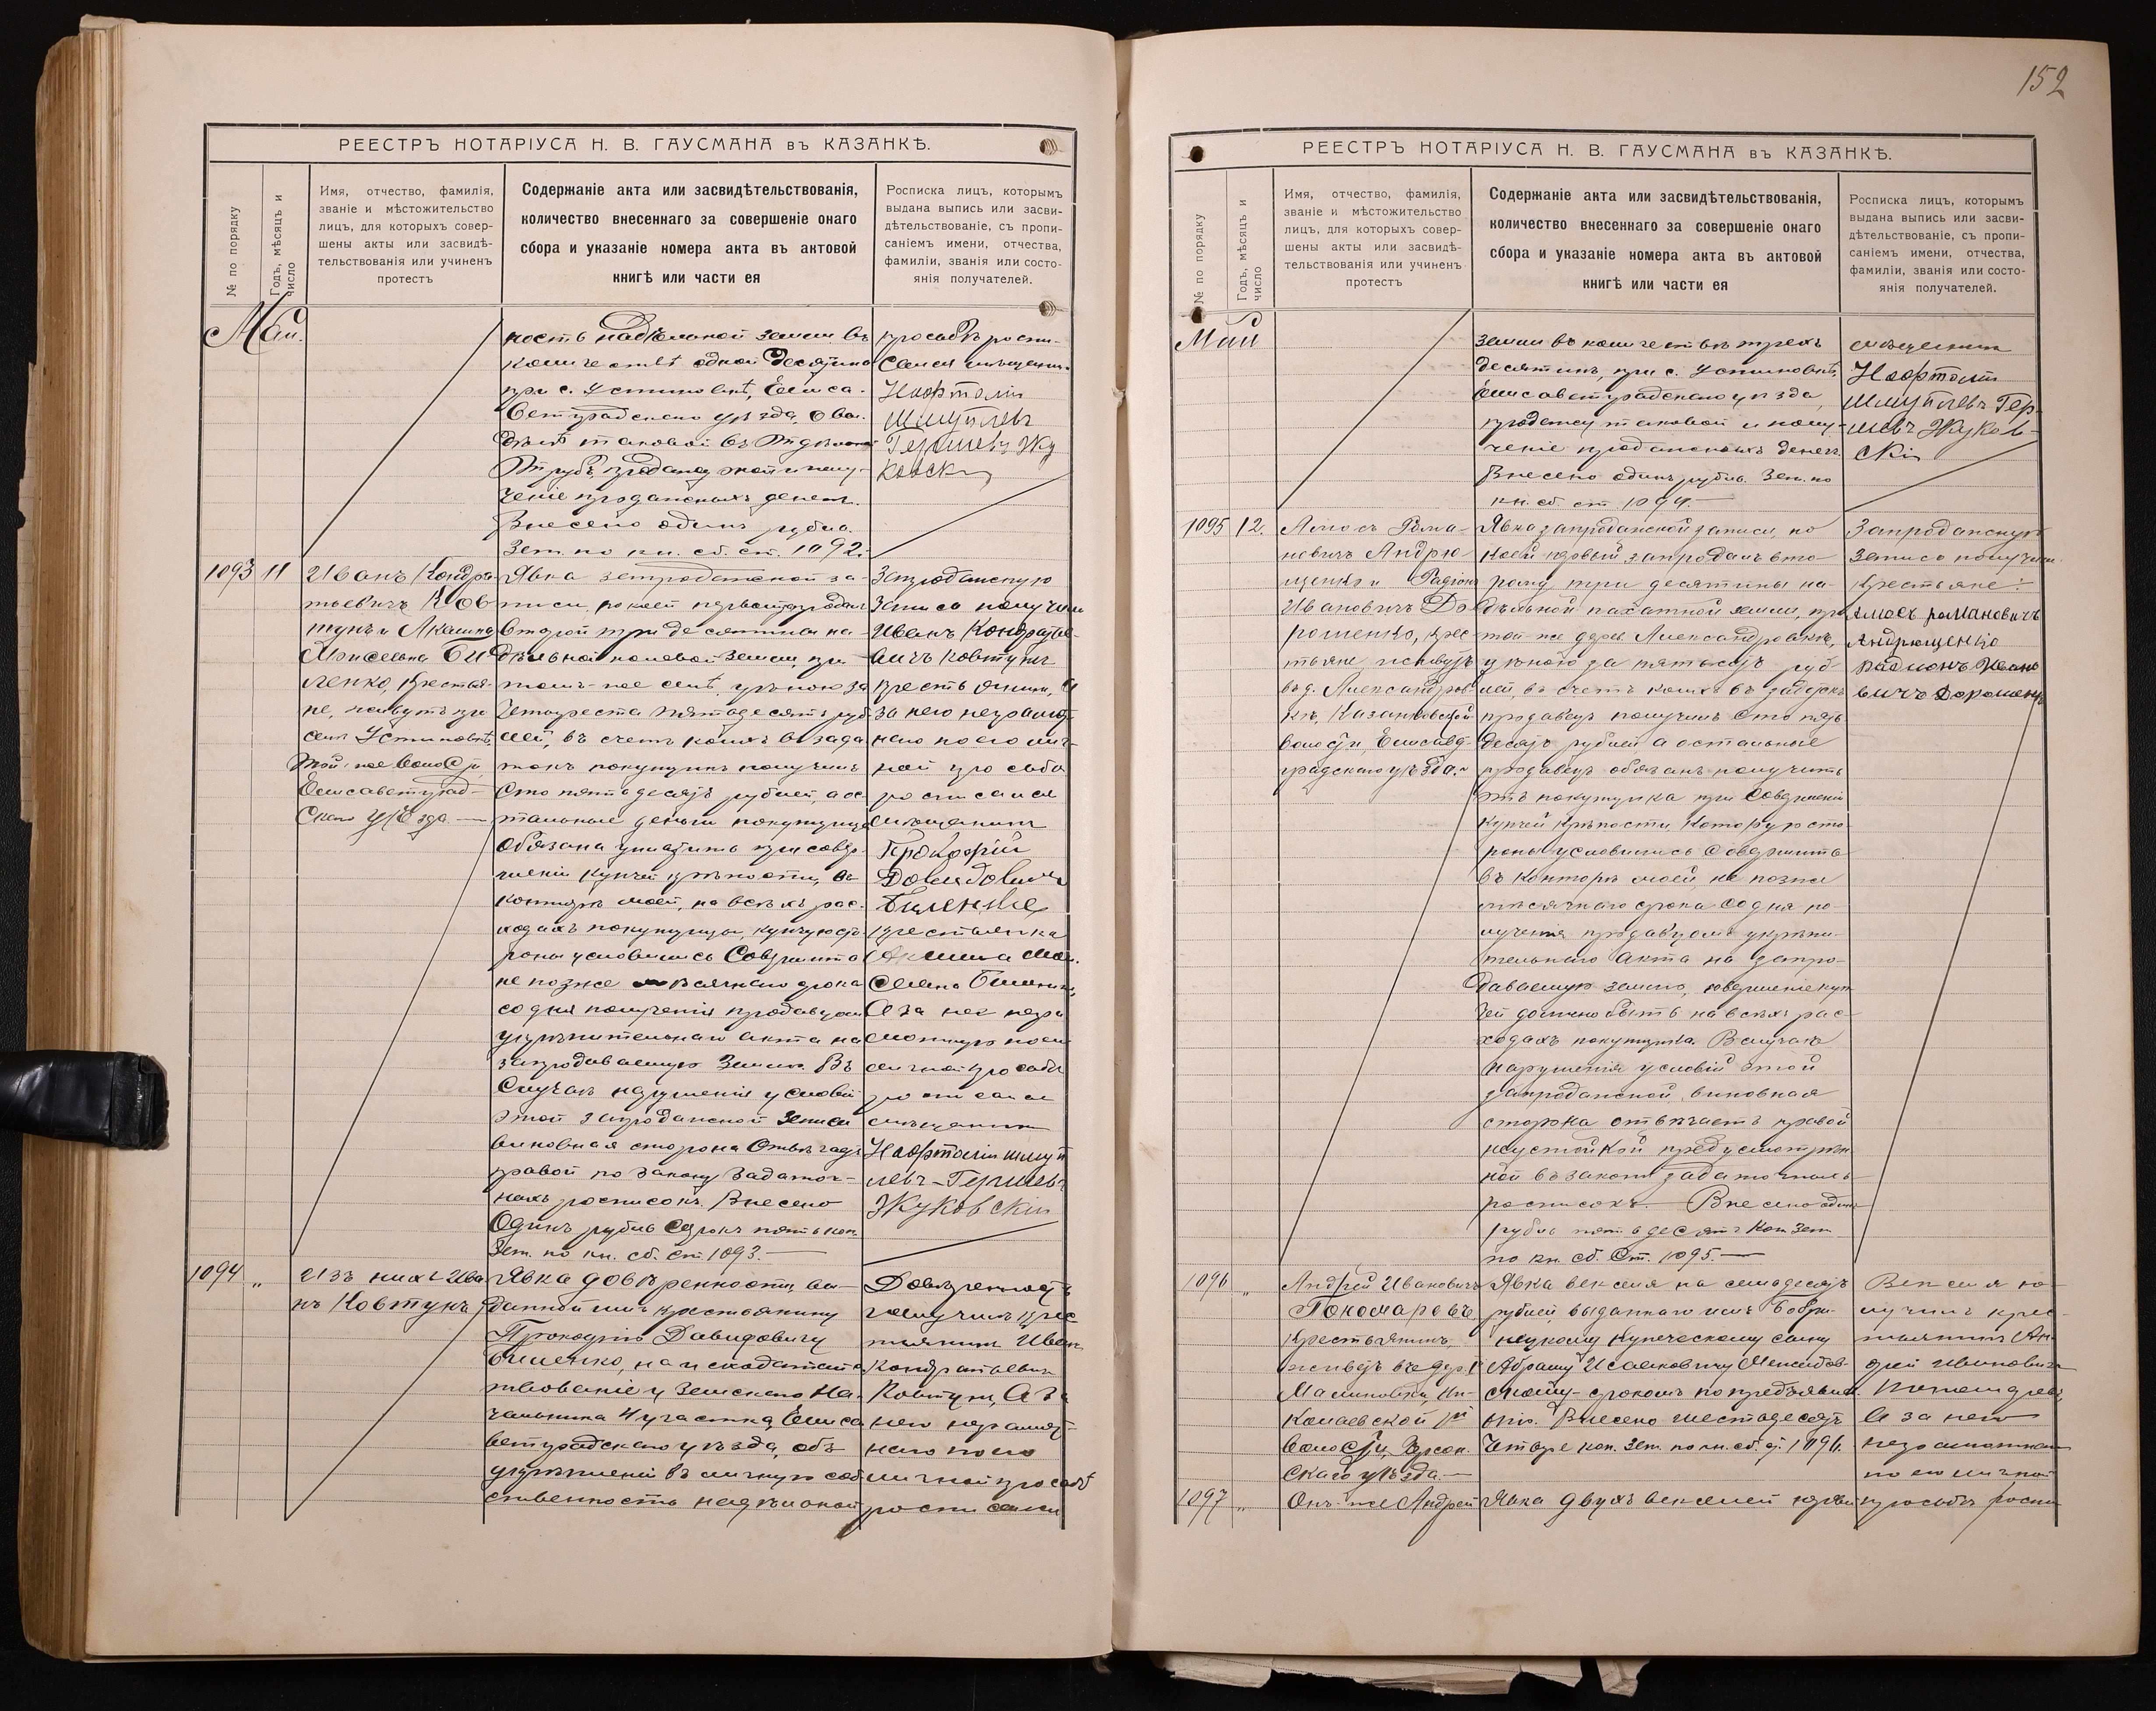 РЕЕСТРЪ НОТАРІУСА Н. В. ГАУСМАНА въ КАЗАНКѢ.
№ по порядку
Годъ, мѣсяцъ и
число
Имя, отчество, фамилія,
званіе и мѣстожительство
лицъ, для которыхъ совер-
шены акты или засвидѣ-
тельствованія или учиненъ
протестъ
Содержаніе акта или засвидѣтельствованія,
количество внесеннаго за совершеніе онаго
сбора и указаніе номера акта въ актовой
книгѣ или части ея
Росписка лицъ, которымъ
выдана выпись или засви-
дѣтельствованіе, съ пропи-
саніемъ имени, отчества,
фамиліи, званія или состо-
янія получателей.
Май.
ность надѣльной земли въ
количествѣ одной десятины
при с. Устиновкѣ, Елиса-
ветградскаго уѣзда, о вы-
дѣлѣ таковой въ
отрубъ, продажу этой и полу-
ченіе продажныхъ денегъ.
Внесено одинъ рубль.
Зем. по кн. сб. ст. 1092.
просьбѣ роспи-
сался мѣщанинъ
Нафтали
Шмулевъ
Гершевъ Жу
ковскій
1093 11
Иванъ Кондра-
тьевичъ Ков-
тунъ и Акилина
Моисеевна Би
ленко, крестья-
не, живутъ при
селѣ Устиновкѣ,
той-же волости,
Елисаветград-
скаго уѣзда.
Явка запродажной за-
писи, по коей первый продалъ
второй три десятины на-
дѣльной полевой земли при
томъ-же селѣ, цѣною за
четыреста пятьдесятъ руб-
лей, въ счетъ коихъ въ зада
токъ покупщикъ получилъ
сто пятьдесятъ рублей, а ос
тальные деньги покупщица
обязана уплатить при совер-
шеніи купчей крѣпости, въ
конторѣ моей, на всѣхъ рас-
ходахъ покупщицы, купчую сто-
роны условились совершить
не позже мѣсячнаго срока
со дня полученія продавцомъ
укрѣпительнаго акта на
запродаваемую землю. Въ
случаѣ нарушенія условій
этой запродажной записи
виновная сторона отвѣчаетъ
правой по закону задаточ-
ныхъ росписокъ. Внесено
Одинъ рубль сорокъ пять коп.
Зем. по кн. сб. ст. 1093.
Запродажную
запись получили
Иванъ Кондратье-
вичъ Ковтунъ
крестьянинъ, а
за него неграмот-
наго по его лич-
ной просьбѣ
росписался
мѣщанинъ
Прокофій
Давидовичъ
Биленко
крестьянка
Акилина Мои-
сеевна Биленко,
а за нее негра
мотную по ея
личной просьбѣ
росписался
мѣщанинъ
Нафтали Шмуй
левъ-Гершевъ
Жуковскій
1094 „
Изъ нихъ Ива
нъ Ковтунъ
Явка довѣренности, вы-
данной имъ крестьянину
Прокофію Давидовичу
Биленко, на исходатай-
ствованіе у Земскаго На-
чальника 4 участка, Елиса
ветградскаго уѣзда, объ
укрѣпленіи въ личную соб
ственность надѣльной
Довѣренность
получилъ крес
тьянинъ Иванъ
Кондратьевичъ
Ковтунъ, а за
него неграмот-
наго по его
личной просьбѣ
росписался
152
РЕЕСТРЪ НОТАРІУСА Н. В. ГАУСМАНА въ КАЗАНКѢ.
№ по порядку
Годъ, мѣсяцъ и
число
Имя, отчество, фамилія,
званіе и мѣстожительство
лицъ, для которыхъ совер-
шены акты или засвидѣ-
тельствованія или учиненъ
протестъ
Содержаніе акта или засвидѣтельствованія,
количество внесеннаго за совершеніе онаго
сбора и указаніе номера акта въ актовой
книгѣ или части ея
Росписка лицъ, которымъ
выдана выпись или засви-
дѣтельствованіе, съ пропи-
саніемъ имени, отчества,
фамиліи, званія или состо-
янія получателей.
Май
земли въ количествѣ трехъ
десятинъ, при с. Устиновкѣ,
Елисаветградскаго уѣзда,
продажу таковой и полу-
ченіе продажныхъ денегъ.
Внесено одинъ рубль. Зем. по
кн. сб. ст. 1094.
мѣщанинъ
Нафтали
Шмулевъ Гер-
шевъ Жуков-
скій
1095 12.
Амосъ Рома-
новичъ Андрю-
щенко и Радіонъ
Ивановичъ До-
рошенко, крес-
тьяне, живутъ
въ д. Александров-
кѣ, Казанковской
волости, Елисавет-
градскаго уѣзда.
Явка запродажной записи, по
коей первый запродалъ вто-
рому три десятины на-
дѣльной пахатной земли, при
той-же дерев. Александровкѣ,
цѣною за пятьсотъ руб-
лей, въ счетъ коихъ въ задатокъ
продавецъ получилъ сто пять
десятъ рублей а остальные
продавецъ обязанъ получить
отъ покупщика при совершеніи
купчей крѣпости, которую сто-
роны условились совершить
въ конторѣ моей, не позже
мѣсячнаго срока со дня по-
лученія продавцомъ укрѣпи-
тельнаго акта на запро-
даваемую землю, совершеніе куп
чей должно быть на всѣхъ рас-
ходахъ покупщика. Въ случаѣ
нарушенія условій этой
запродажной, виновная
сторона отвѣчаетъ правой
неустойкой предусмотрѣн
ной въ законѣ задаточныхъ
росписокъ. Внесено одинъ
рубль пятьдесятъ коп. Зем.
по кн. сб. ст. 1095.
Запродажную
запись получили
крестьяне:
Амосъ Романовичъ
Андрющенко
Радионъ Ивано
вичъ Дорошенко
1096 „
Андрей Ивановичъ
Пономаревъ,
крестьянинъ,
живетъ въ дер.
Малиновкѣ, Ни-
колаевской 2й
волости, Херсон-
скаго уѣзда.
Явка векселя на семьдесятъ
рублей, выданнаго имъ Бобри-
нецкому купеческому сыну
Абраму Исааковичу
срокомъ по предъявле-
нію. Внесено шестьдесятъ
четыре коп. Зем. по кн. сб. ст. 1096.
Вексель по-
лучилъ крес-
тьянинъ Ан-
дрей Ивановичъ
Пономаревъ,
а за него
неграмотнаго
по его личной
1097 „
Онъ-же Андрей
Явка двухъ векселей
просьбѣ роспи